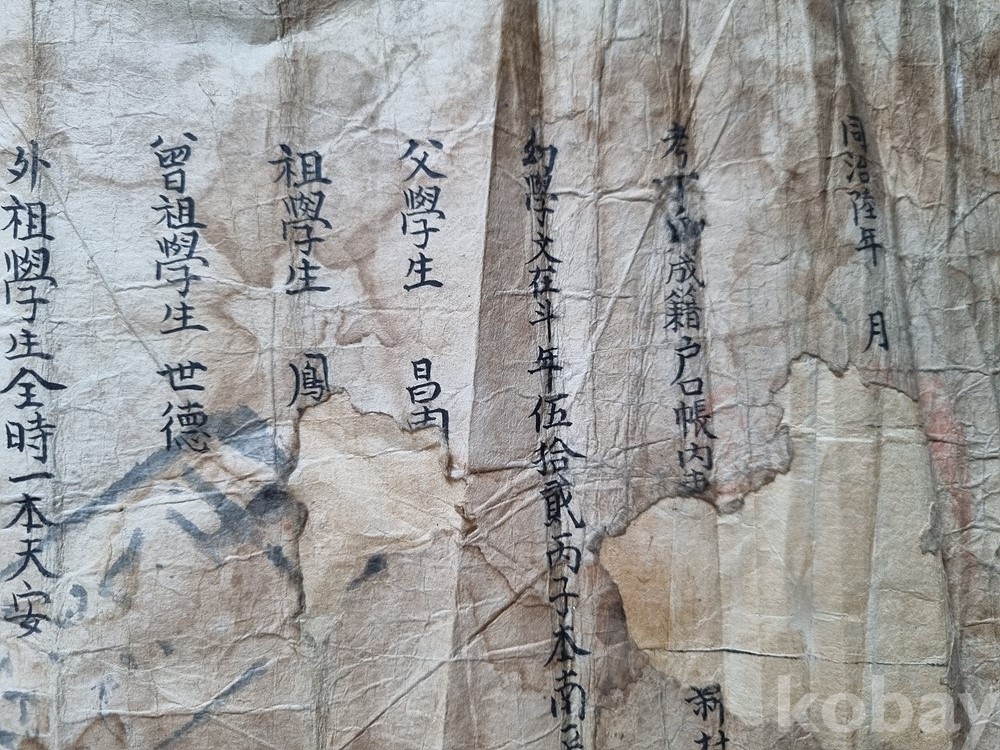 同治陸年 月
考丁卯成籍戶口帳內 新村
幼學文在斗年伍拾貳丙子本南
父學生 昌
祖學生 鳳
曾祖學生 世德
外祖學生全時一本天安
kobay